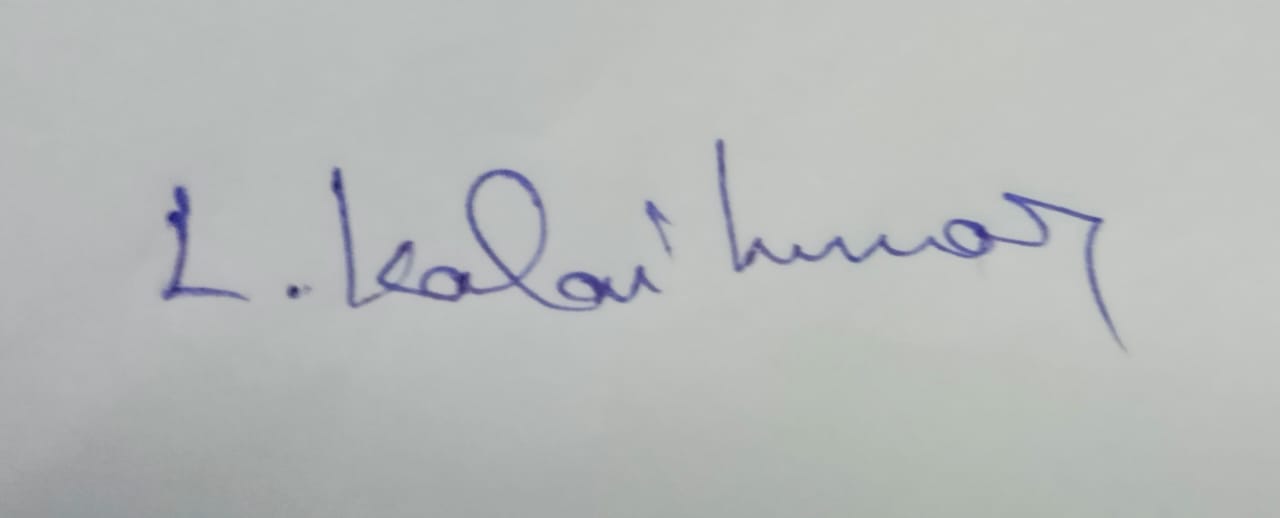 L. Kalaikumar